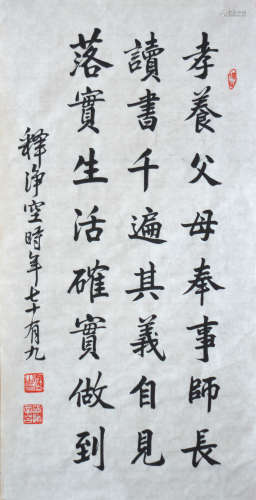 孝養父母奉事師長
讀書千遍其義自見
落實生活確實做到
釋淨空時年七十有九